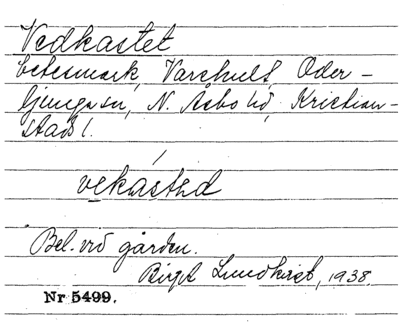 Vedkastet
betesmark, Varshult, Oder-
ljunga sn, N. Åsbo hd, Kristian-
stads l.
vekastəd
Bel. vid gården.
Birgit Lundkvist, 1938.
Nr 5499.